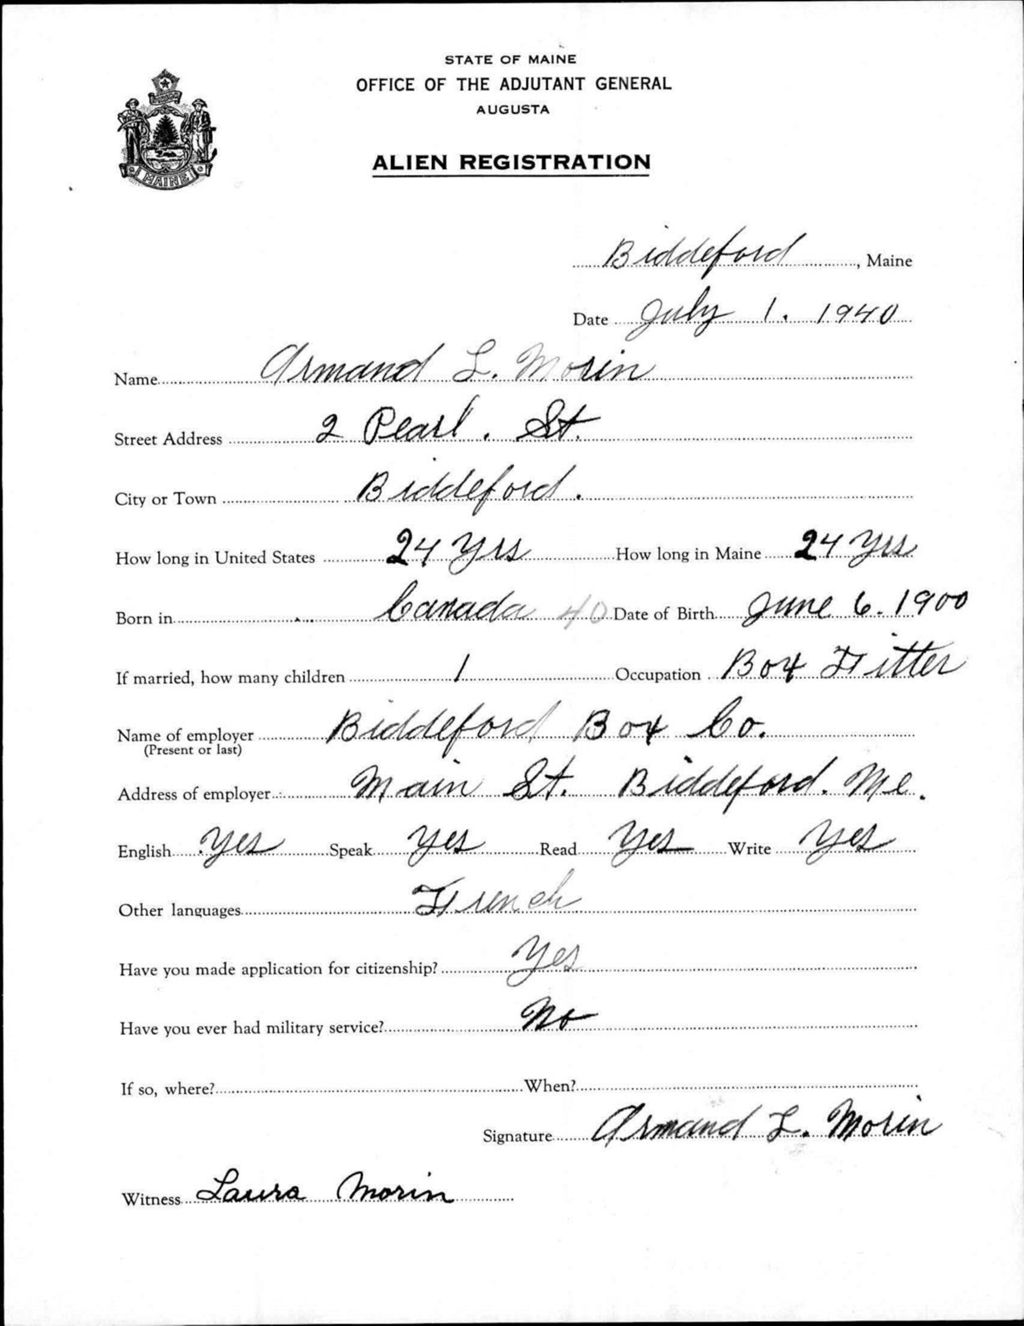 STATE OF MAINE
OFFICE OF THE ADJUTANT GENERAL
AUGUSTA
ALIEN REGISTRATION
MAINE
Biddeford, Maine
Date July 1. 1940
Name Armand L. Morin
Street Address 2 Pearl. St.
City or Town Biddeford.
How long in United States 24 yrs How long in Maine 24 yrs
Born in Canada 40 Date of Birth June 6. 1900
If married, how many children 1 Occupation Box Fitter
Name of employer Biddeford Box Co.
(Present or last)
Address of employer Main St. Biddeford. Me.
English yes Speak yes Read yes Write yes
Other languages French
Have you made application for citizenship? Yes
Have you ever had military service? No
If so, where? When?
Signature Armand L. Morin
Witness Laura Morin